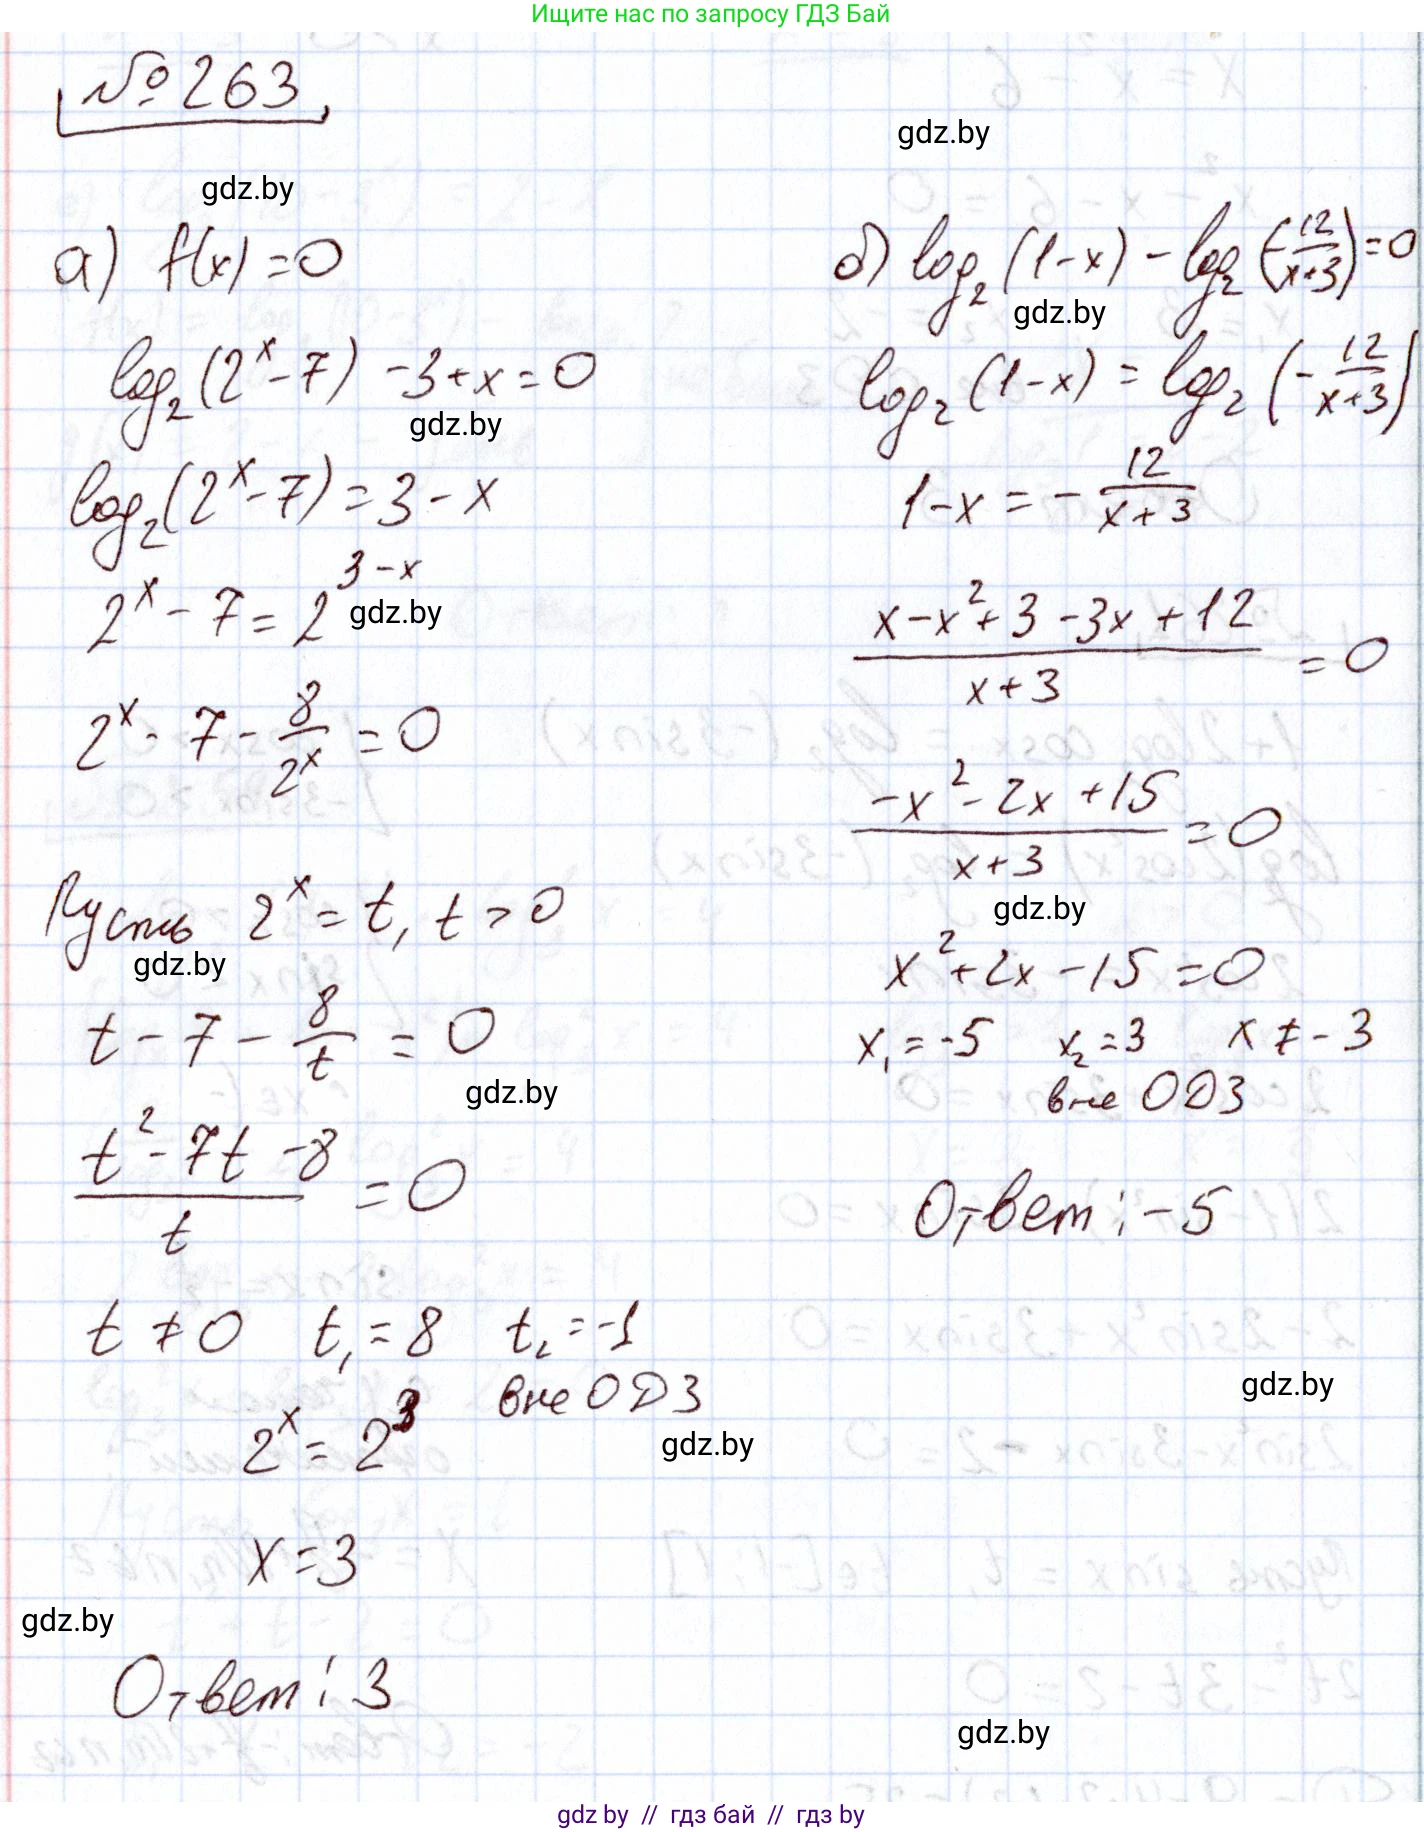 Ищите нас по запросу ГДЗ Бай
№ 263
gdz.by
gdz.by
а) f(x) = 0
log₂(2ˣ - 7) - 3 + x = 0
gdz.by
log₂(2ˣ - 7) = 3 - x
2ˣ - 7 = 2³⁻ˣ
gdz.by
2ˣ - 7 - 8/2ˣ = 0
Пусть 2ˣ = t, t > 0
gdz.by
t - 7 - 8/t = 0
gdz.by
(t² - 7t - 8)/t = 0
t ≠ 0 t₁ = 8 t₂ = -1
вне ОДЗ
2ˣ = 2³
gdz.by
x = 3
gdz.by
Ответ: 3
б) log₂(1-x) - log₂(-12/(x+3)) = 0
gdz.by
log₂(1-x) = log₂(-12/(x+3))
1-x = -12/(x+3)
(x - x² + 3 - 3x + 12)/(x+3) = 0
(-x² - 2x + 15)/(x+3) = 0
gdz.by
x² + 2x - 15 = 0
x₁ = -5 x₂ = 3 x ≠ -3
вне ОДЗ
Ответ: -5
gdz.by
gdz.by
gdz by // гдз бай // гдз by